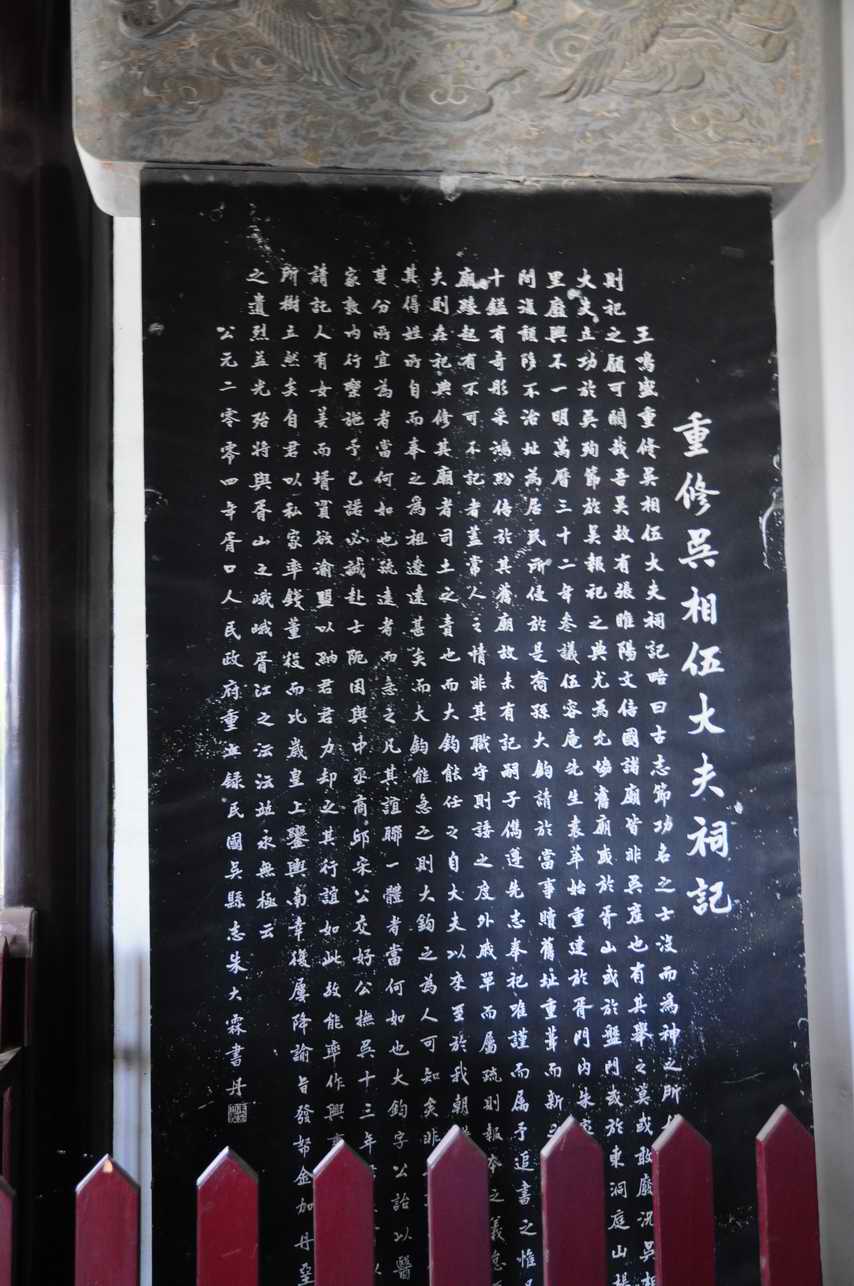 重修吳相伍大夫祠記
王鳴盛重修吳相伍大夫祠記略曰古志節功名之士沒而為神之所
則祀之顧可闕哉吾吳故有張睢陽文信國諸廟皆非吳產也有其舉之莫或敢廢況吳相
大夫立功於吳殉節於吳報祀之典尤為允協舊廟或於胥山或於盤門或於東洞庭山
里廢興不一明萬曆三十二年參議伍容庵先生袁萃始重建於胥門內朱
閒復頹陊不治址為居民所侵於是裔孫大鈞請於當事贖舊址重葺而新之
十鎰有奇彤采鴻紛倍於其舊廟故未有記嗣子儁遵先志奉祀唯謹而屬予追書之惟
廟殊起有不可不記者蓋常人之情非其職守則諉之度外戚單而屬疏則報本之義怠
夫則在祀典修其廟者司土之責也而大鈞能任之自大夫以來至於我朝
其得姓所自而奉之為祖遼遠甚矣而大鈞能急之則大鈞之為人可知矣非
其分所宜為者當何如也疏遠者而急之凡其誼聯一體者當何如也大鈞字公詒以醫
家敦內行樂施予已諾必誠赴士阨困與中丞商邱宋公交好公撫吳十三年
請記人有女美而壻貧欲渝盟以納君君力却之其行誼如此故能率作興
所樹立然矣自君以私家率錢董役而比歲皇上鑾輿南幸後屢降諭旨發帑金加丹堊
之遺烈益光殆將與胥山之峨峨胥江之沄沄並永無極云
公元二零零四年胥口人民政府重立錄民國吳縣志朱大霖書丹